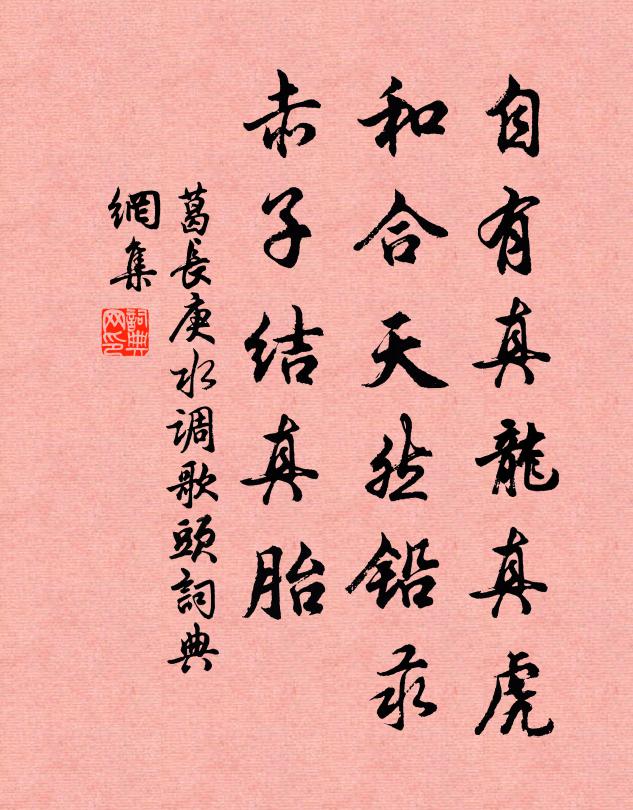 自有真龍真虎
和合天然鉛汞
赤子結真胎
葛長庚水调歌頭詞典
網集
詞典
网印